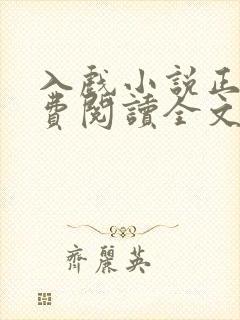 入戲小說正
費閱讀全文
齊麗英